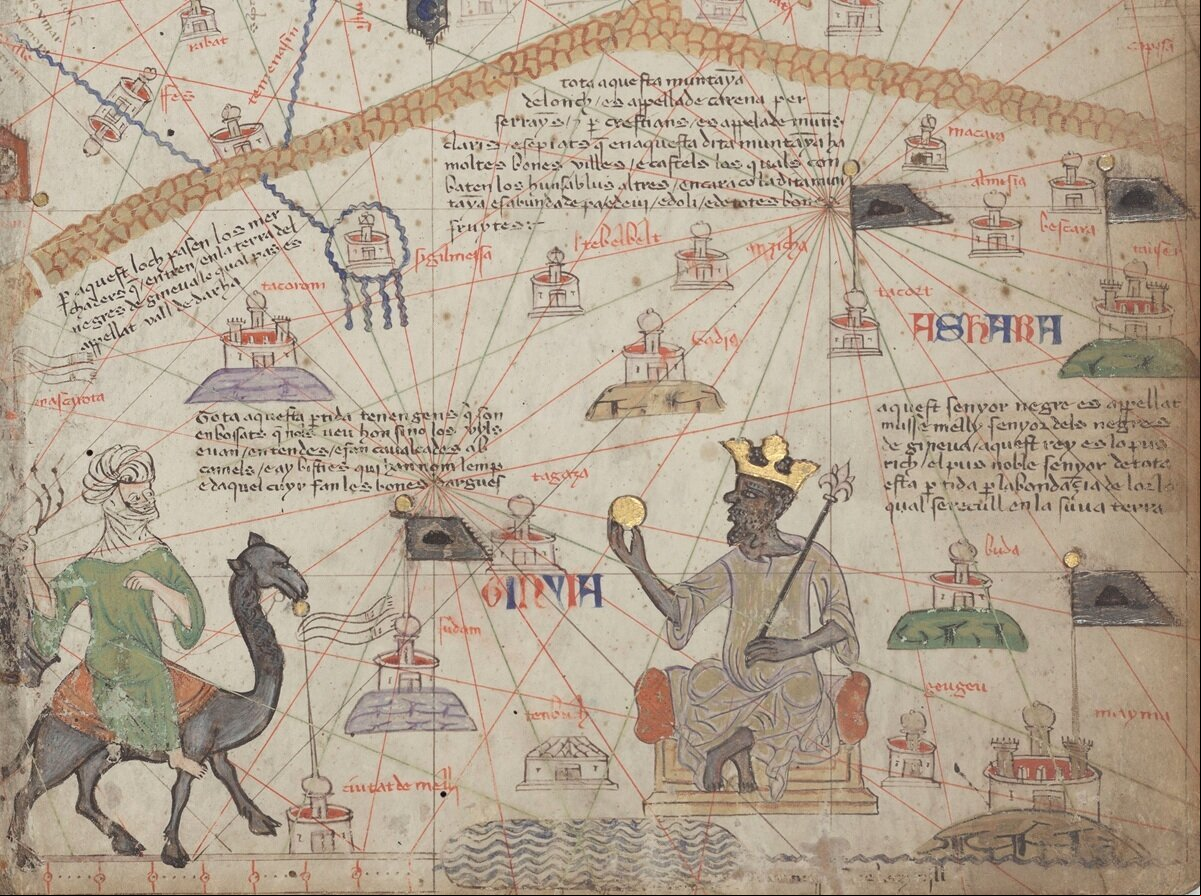 ribat
ffes
tota aquesta muntaya
de lonch / es appellade carena per
serrayns / e p crestians / es appelade muntis
claris / e sepiats q en aquesta dita muntaya ha
moltes bones villes / e castels los quals con
baten los huns ab lus altres / encara co la dita mun
taya es abundade pa e de vi / e doli / e de totes bones
fruytes :-
macara
almsia
bescara
P aquest loch pasen los mer
chaders q entren en la terra del
negres de gineua lo qual pas es
appellat vall de darha
sigilmessa
tebelbelt
tacorom
tacort
ASHARA
Tota aquesta ptida tenen gens q son
enbossats q nols veu hom sino los vyls
e van / en tendes / e fan caualcades ab
camels / e ay bisties qui han nom lemp
e daquel cuyr fan les bones dargues
aquest senyor negre es appellat
musse melly senyor dels negres
de gineua / aquest rey es lo pus
rich / el pus noble senyor de tota
esta ptida p labondançia de lor
qual se recull en la süua terra
tagaza
buda
GINYIA
sudam
tenbuch
geugeu
mayma
ciutat de melli